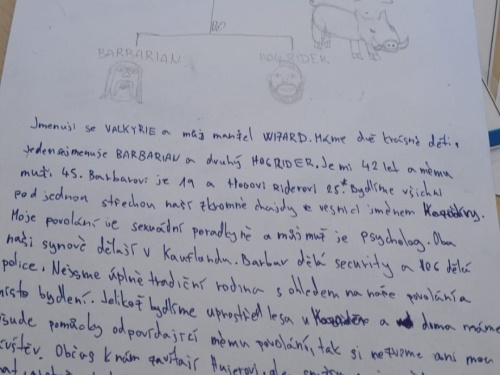 BARBARIAN HOGRIDER
Jmenuji se VALKYRIE a můj manžel WIZARD. Máme dvě krásné děti,
jeden se jmenuje BARBARIAN a druhý HOGRIDER. Je mi 42 let a mému
muži 45. Barbarovi je 19 a Hogovi Riderovi 25. Bydlíme všichni
pod jednou střechou naší skromné chajdy ve vesnici jménem
Moje povolání je sexuální poradkyně a můj muž je psycholog. Oba
naši synové dělají v Kauflandu. Barbar dělá security a HOG dělá
police. Nejsme úplně tradiční rodina s ohledem na naše povolání a
místo bydlení. Jelikož bydlíme uprostřed lesa u a doma máme
všude pomůcky odpovídající mému povolání, tak si nezveme ani moc
návštěv. Občas k nám zavítají